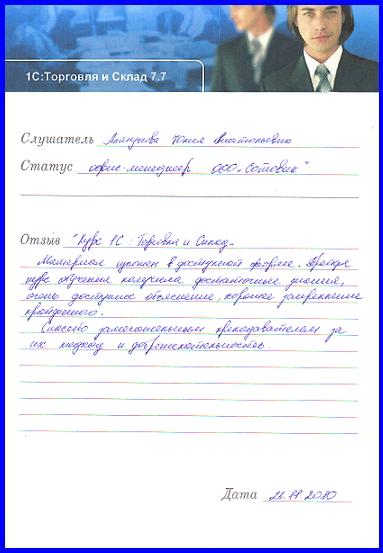 1С:Торговля и Склад 7.7
Слушатель Юлия Анатольевна
Статус офис-менеджер ООО „Сотовик"
Отзыв "Курс 1С: Торговля и Склад„
Материал изложен в доступной форме. Пройдя
курс обучения получила достаточные знания,
очень доступное объяснение, хорошее закрепление
пройденного.
Спасибо замечательным преподавателям за
их подход и доброжелательность.
Дата 26.11.2010